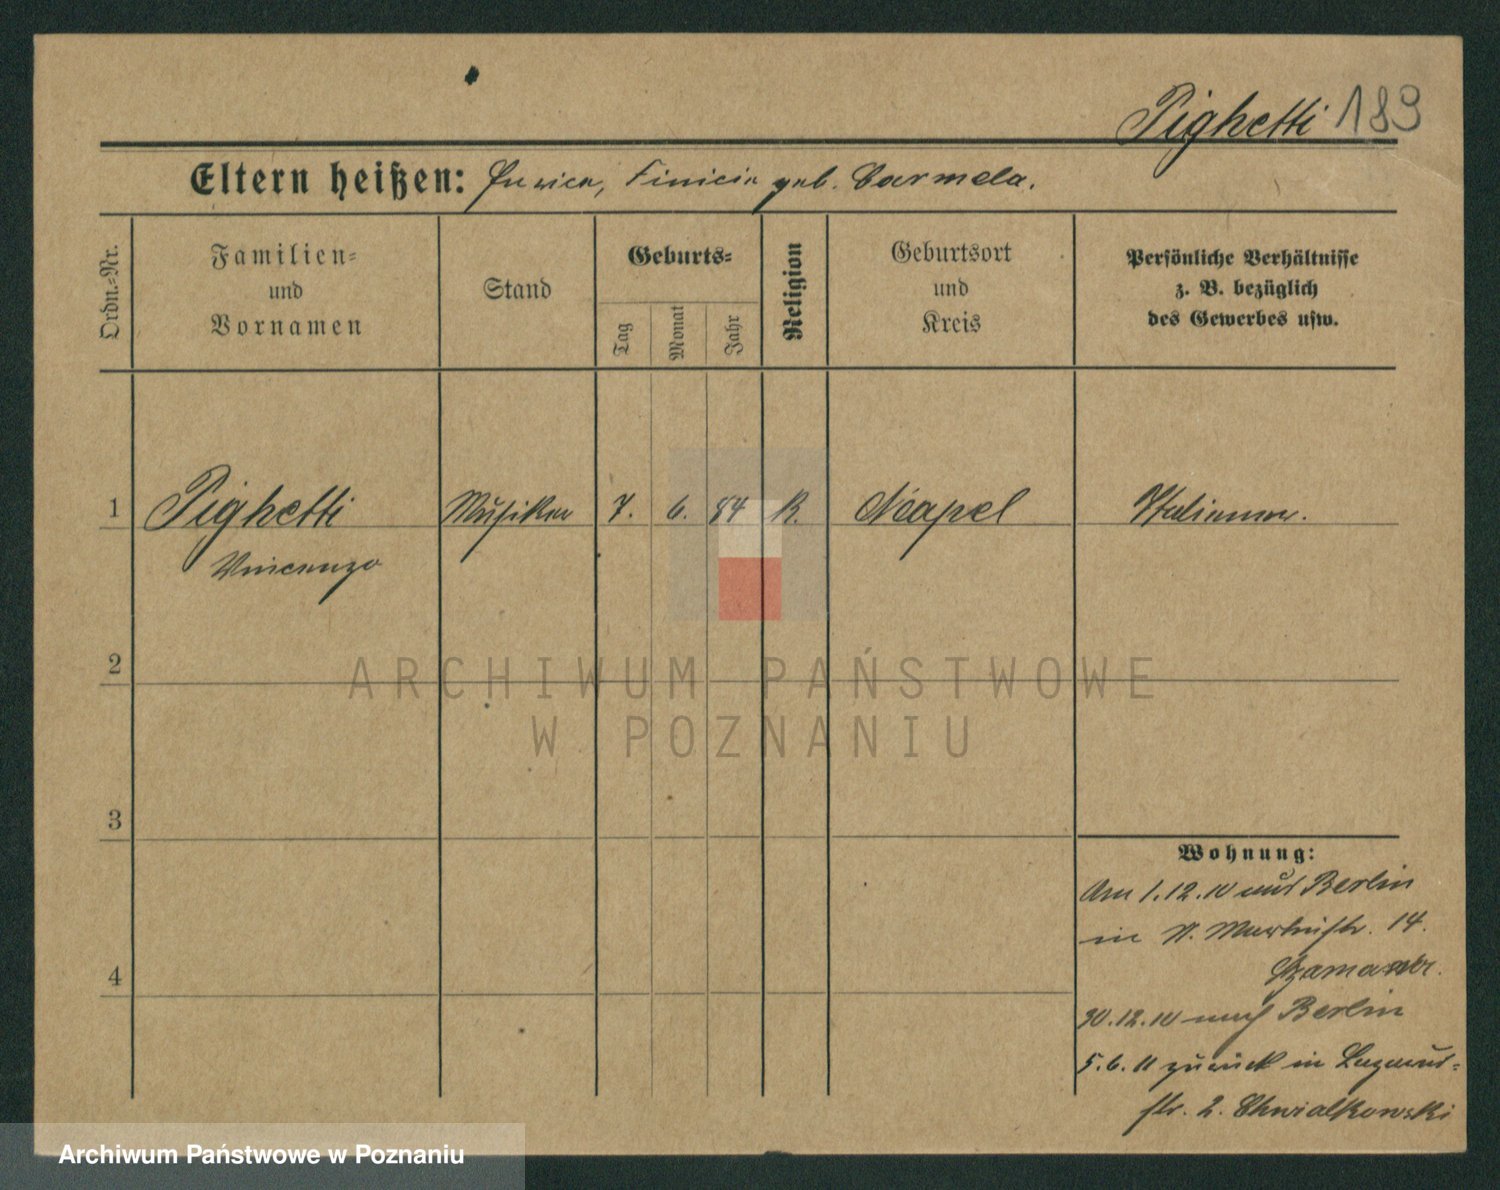 Pighetti 189
Eltern heißen: geb. Carmela.
Ordn.-Nr.
Familien-
und
Vornamen
Stand
Geburts-
Tag
Monat
Jahr
Religion
Geburtsort
und
Kreis
Persönliche Verhältnisse
z. B. bezüglich
des Gewerbes usw.
1 Pighetti Musiker 7. 6. 84 K. Neapel Italiener.
Vincenzo
2
3
4
ARCHIWUM PAŃSTWOWE
W POZNANIU
Wohnung:
Am 1.12.10 aus Berlin
in 14.
30.12.10 nach Berlin
5.6.11 zurück in Lazarus-
str. 2. Chwialkowski
Archiwum Państwowe w Poznaniu